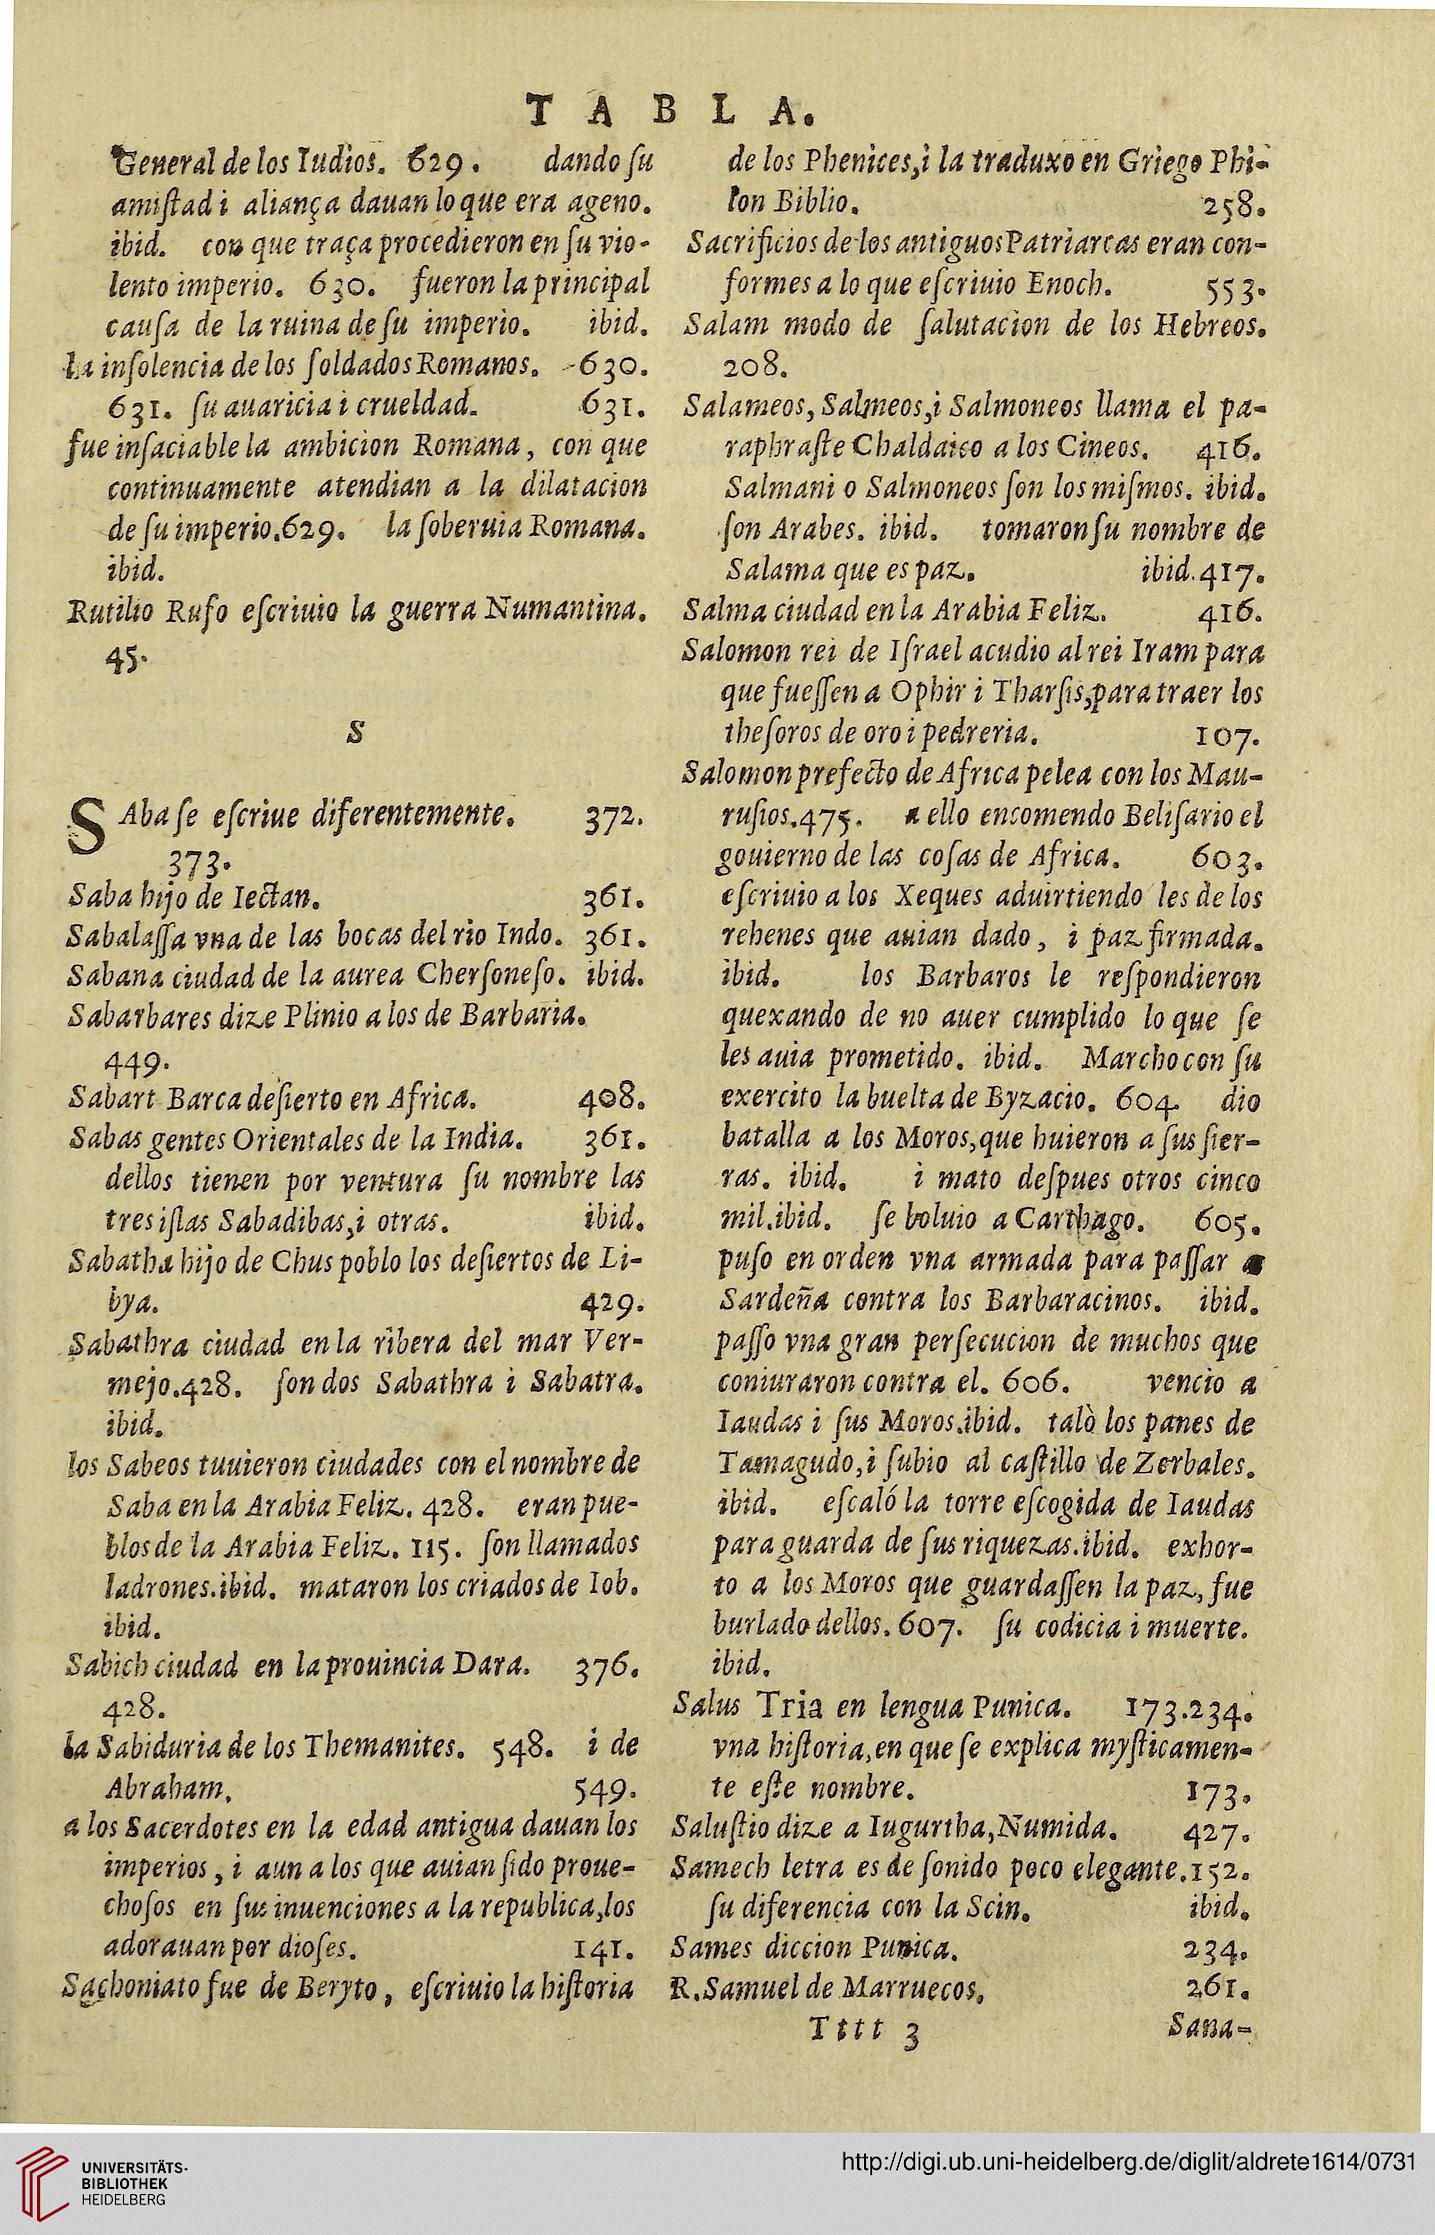 TABLA.
General de los Iudios. 629. dando ſu
amiſtad i aliança dauan lo que era ageno.
ibid. con que traça procedieron en ſu vio-
lento imperio. 630. fueron la principal
cauſa de la ruina de ſu imperio. ibid.
la inſolencia de los ſoldados Romanos. 630.
631. ſu auaricia i crueldad. 631.
fue inſaciable la ambicion Romana, con que
continuamente atendian a la dilatacion
de ſu imperio.629. la ſoberuia Romana.
ibid.
Rutilio Rufo eſcriuio la guerra Numantina.
45.
S
SAba ſe eſcriue diferentemente. 372.
373.
Saba hijo de Iectan. 361.
Sabalaſſa vna de las bocas del rio Indo. 361.
Sabana ciudad de la aurea Cherſoneſo. ibid.
Sabarbares dize Plinio a los de Barbaria.
449.
Sabart Barca deſierto en Africa. 408.
Sabas gentes Orientales de la India. 361.
dellos tienen por ventura ſu nombre las
tres iſlas Sabadibas,i otras. ibid.
Sabatha hijo de Chus poblo los deſiertos de Li-
bya. 429.
Sabathra ciudad en la ribera del mar Ver-
mejo.428. ſon dos Sabathra i Sabatra.
ibid.
los Sabeos tuuieron ciudades con el nombre de
Saba en la Arabia Feliz. 428. eran pue-
blos de la Arabia Feliz. 115. ſon llamados
ladrones.ibid. mataron los criados de Iob.
ibid.
Sabich ciudad en la prouincia Dara. 376.
428.
la Sabiduria de los Themanites. 548. i de
Abraham. 549.
a los Sacerdotes en la edad antigua dauan los
imperios, i aun a los que auian ſido proue-
choſos en ſus inuenciones a la republica,los
adorauan por dioſes. 141.
Sachoniato fue de Beryto, eſcriuio la hiſtoria
de los Phenices,i la traduxo en Griego Phi-
lon Biblio. 258.
Sacrificios de los antiguos Patriarcas eran con-
formes a lo que eſcriuio Enoch. 553.
Salam modo de ſalutacion de los Hebreos.
208.
Salameos, Salmeos,i Salmoneos llama el pa-
raphraſte Chaldaico a los Cineos. 416.
Salmani o Salmoneos ſon los miſmos. ibid.
ſon Arabes. ibid. tomaron ſu nombre de
Salama que es paz. ibid.417.
Salma ciudad en la Arabia Feliz. 416.
Salomon rei de Iſrael acudio al rei Iram para
que fueſſen a Ophir i Tharſis,para traer los
theſoros de oro i pedreria. 107.
Salomon prefecto de Africa pelea con los Mau-
ruſios.475. a ello encomendo Beliſario el
gouierno de las coſas de Africa. 603.
eſcriuio a los Xeques aduirtiendo les de los
rehenes que auian dado, i paz firmada.
ibid. los Barbaros le reſpondieron
quexando de no auer cumplido lo que ſe
les auia prometido. ibid. Marcho con ſu
exercito la buelta de Byzacio. 604. dio
batalla a los Moros,que huieron a ſus ſier-
ras. ibid. i mato deſpues otros cinco
mil.ibid. ſe boluio a Carthago. 605.
puſo en orden vna armada para paſſar a
Sardeña contra los Barbaracinos. ibid.
paſſo vna gran perſecucion de muchos que
coniuraron contra el. 606. vencio a
Iaudas i ſus Moros.ibid. talò los panes de
Tamagudo,i ſubio al caſtillo de Zerbales.
ibid. eſcaló la torre eſcogida de Iaudas
para guarda de ſus riquezas.ibid. exhor-
to a los Moros que guardaſſen la paz, fue
burlado dellos. 607. ſu codicia i muerte.
ibid.
Salus Tria en lengua Punica. 173.234.
vna hiſtoria,en que ſe explica myſticamen-
te eſte nombre. 173.
Saluſtio dize a Iugurtha,Numida. 427.
Samech letra es de ſonido poco elegante.152.
ſu diferencia con la Scin. ibid.
Sames diccion Punica. 234.
R.Samuel de Marruecos. 261.
Tttt 3 Sana-
UNIVERSITÄTS-
BIBLIOTHEK
HEIDELBERG
http://digi.ub.uni-heidelberg.de/diglit/aldrete1614/0731